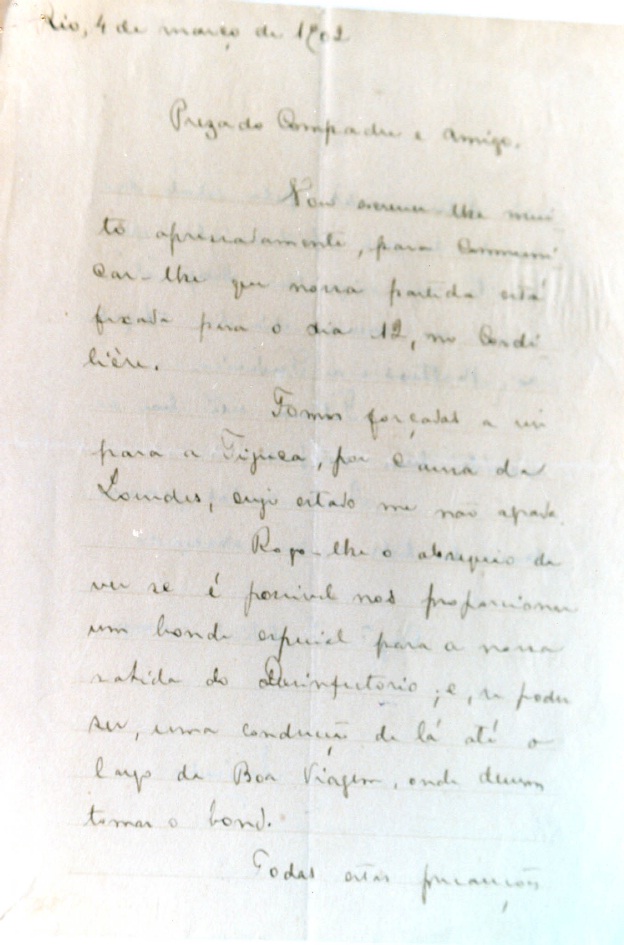 Rio, 4 de março de 1902
Prezado Compadre e amigo.
Vou escrever-lhe mui-
to apressadamente, para Communi-
car-lhe que nossa partida está
fixada para o dia 12, no Cordi-
lière.
Fomos forçados a vir
para a Tijuca, por causa da
Lourdes, cujo estado me não agrada.
Rogo-lhe o obsequio de
ver se é possivel nos proporcionar
um bonde especial para a nossa
sahida do Desinfectorio; e, se poder
ser, uma conducção de lá até o
largo da Boa Viagem, onde devemos
tomar o bond.
Todas estas precauções